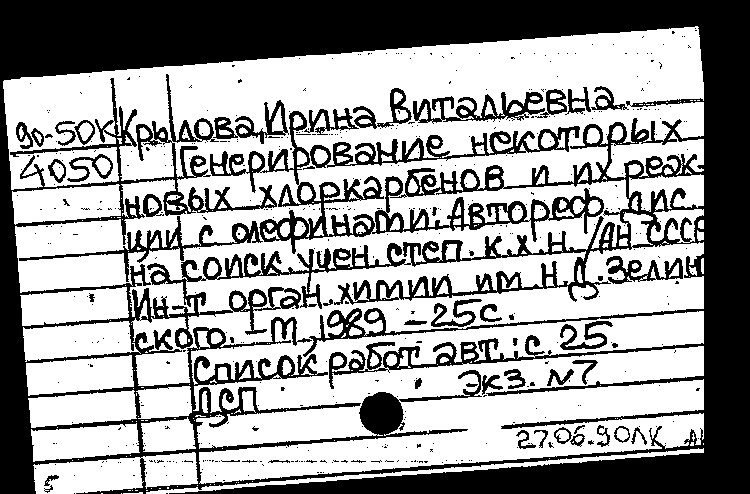 90-50К Крылова, Ирина Витальевна
4050 Генерирование некоторых
новых хлоркарбенов и их реак-
ции с олефинами: Автореф. дис.
на соиск. учен. степ. к.х.н. /АН СССР
Ин-т орган. химии им. Н.Д. Зелин
ского. - М, 1989. - 25с.
Список работ авт.: с. 25.
ДСП Экз. №7.
27.06.90ЛК
5